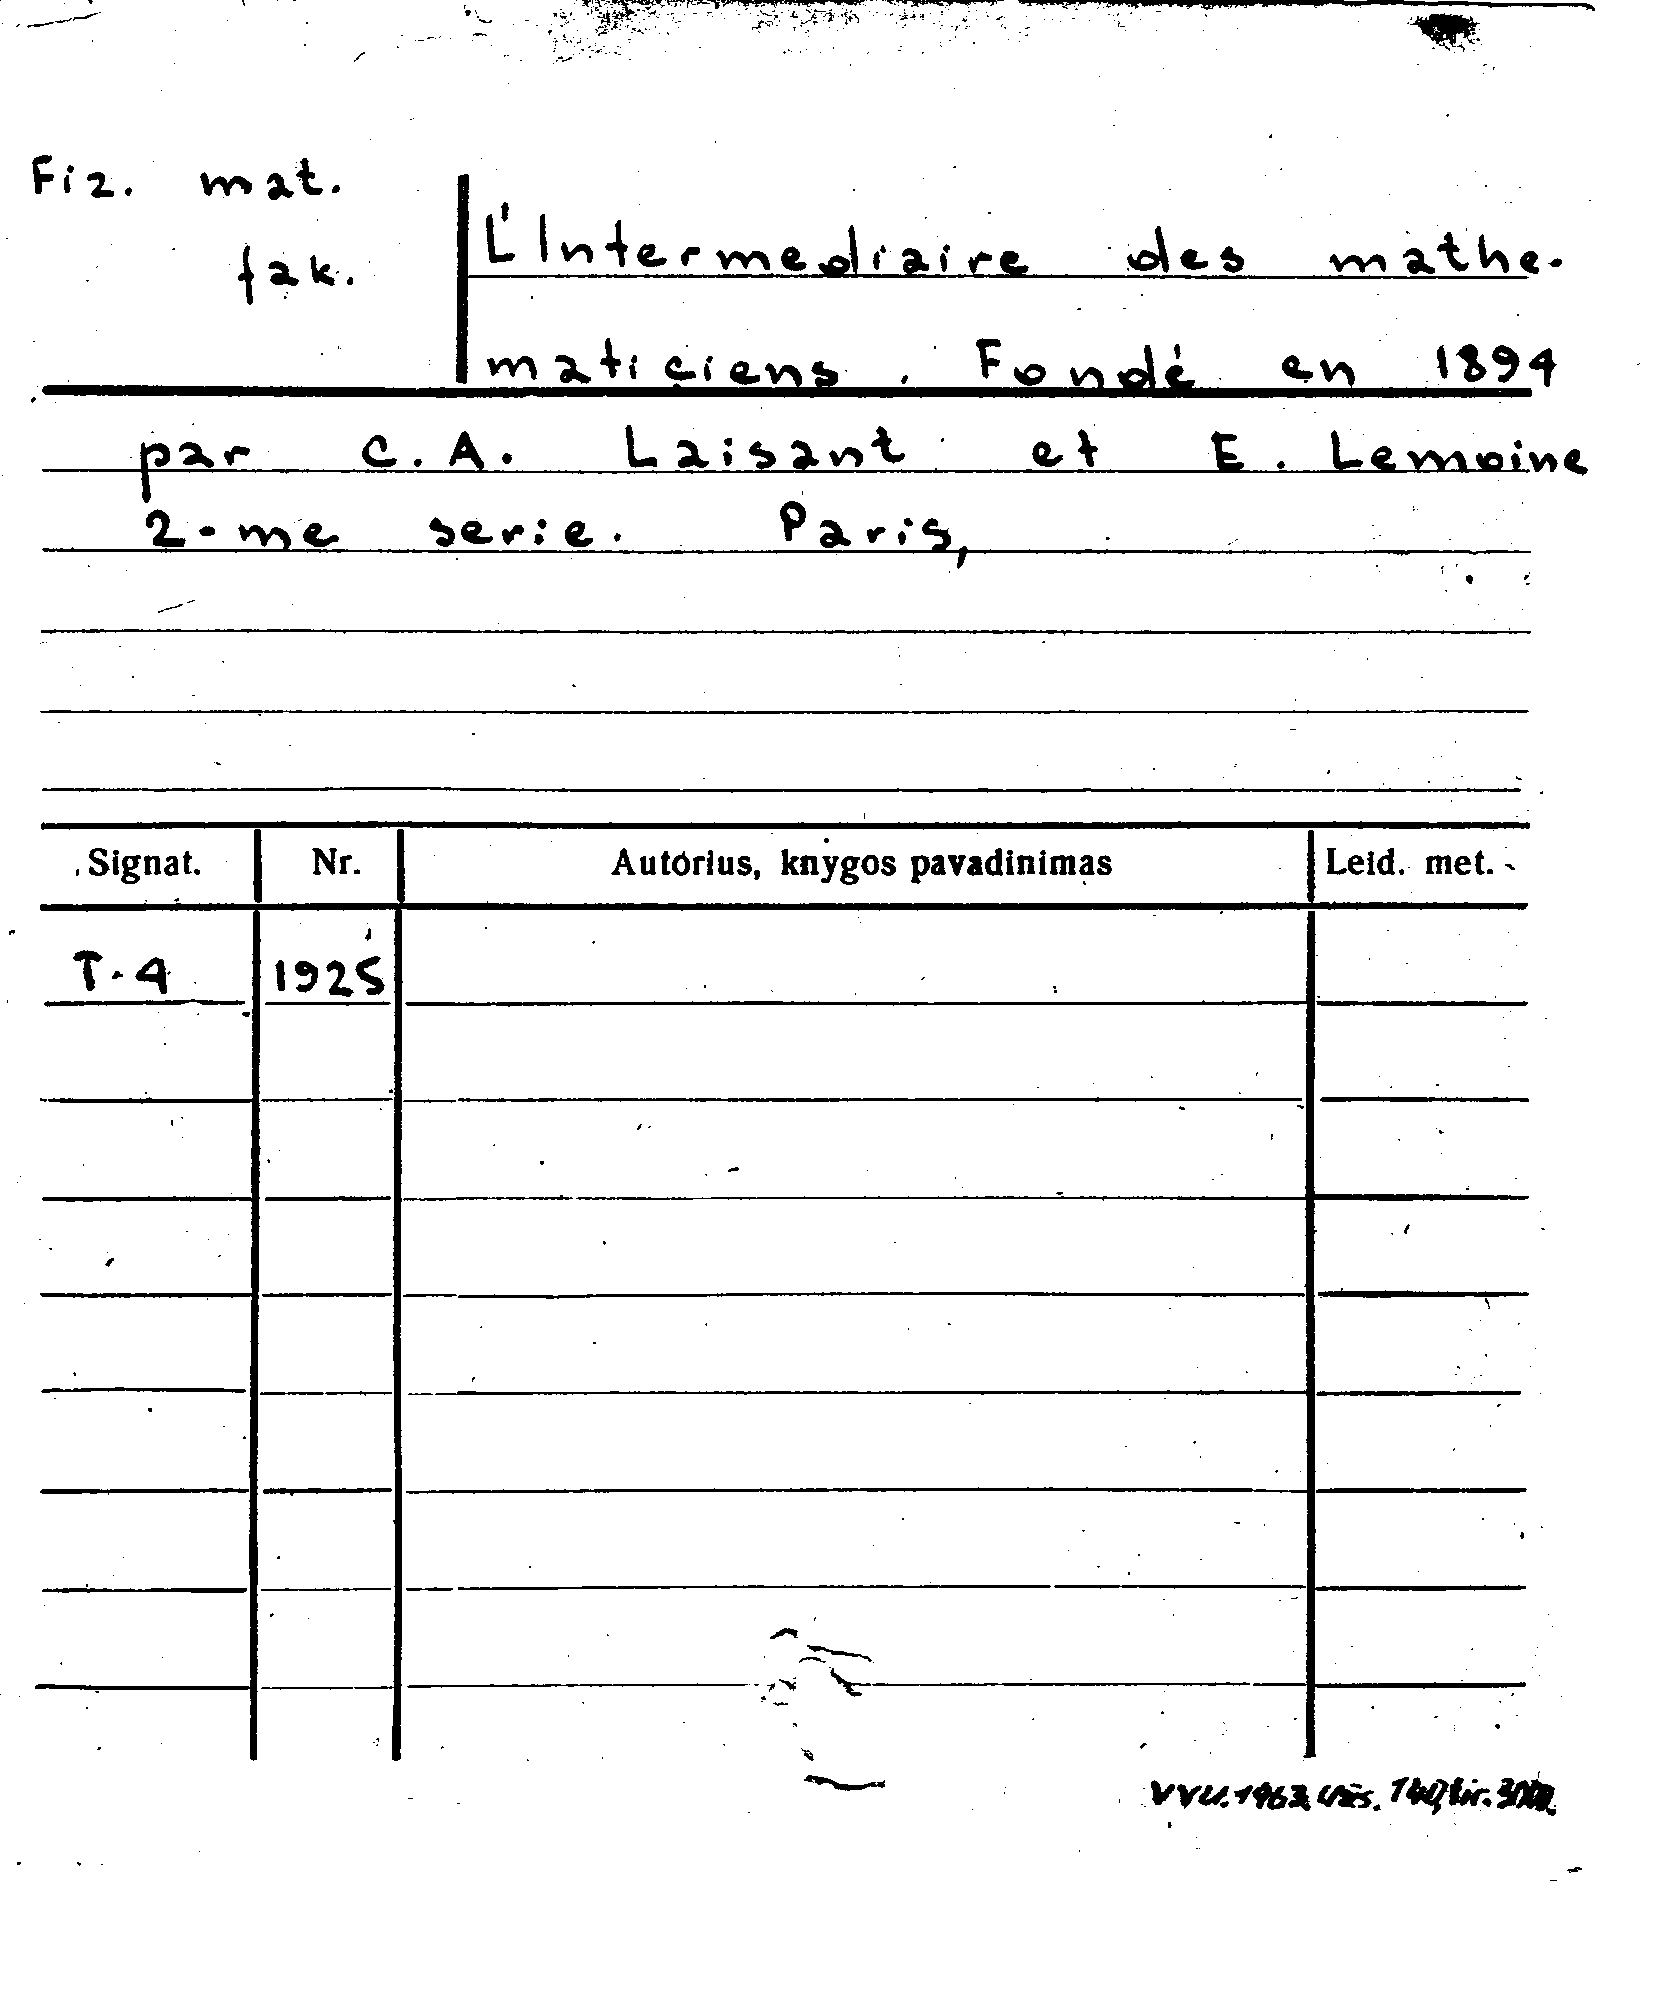 Fiz. mat.
fak.
L'Intermediaire des mathe-
maticiens. Fondé en 1894
par C.A. Laisant et E. Lemoine
2-me serie. Paris,
Signat. Nr. Autorius, knygos pavadinimas Leid. met.
T-4 1925
VVU. 1963. Užs. 140, tir. 3000.